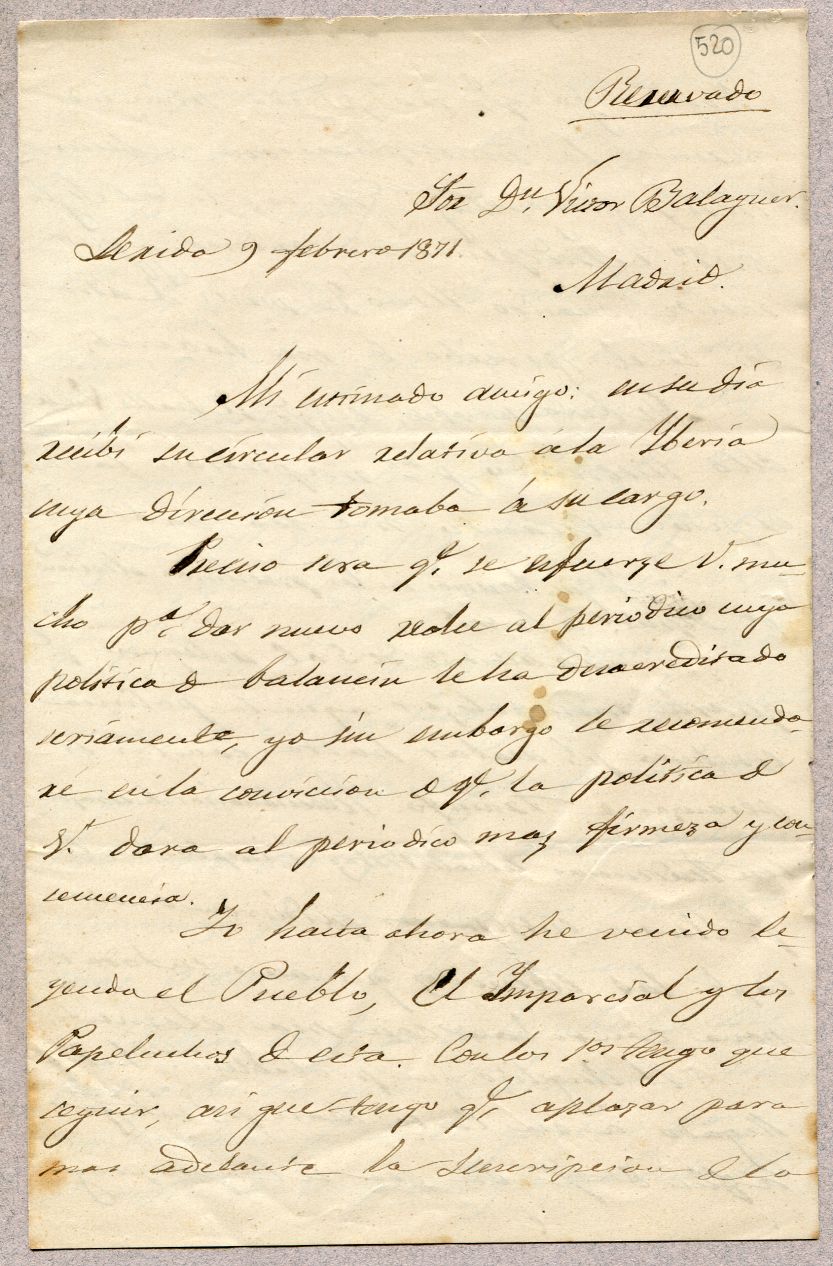 520
Reservado
Sor Dn. Victor Balaguer.
Lerida 9 febrero 1871.
Madrid.
Mi estimado amigo: en su dia
recibi su circular relativa á la Yberia
cuya dirección tomaba á su cargo.
Preciso sera qe. se esfuerze V. mu-
cho pa. dar nuevo realce al periodico cuya
politica de balancin le ha desacreditado
seriamente, yo sin embargo le recomenda-
ré en la conviccion de qe. la politica de
V. dara al periodico mas firmeza y con-
secuencia.
Yo hasta ahora he venido le-
yendo el Pueblo, El Ymparcial y los
Papeluchos de esta. Con los 1os tengo que
seguir, asi que tengo qe. aplazar para
mas adelante la suscripcion de la